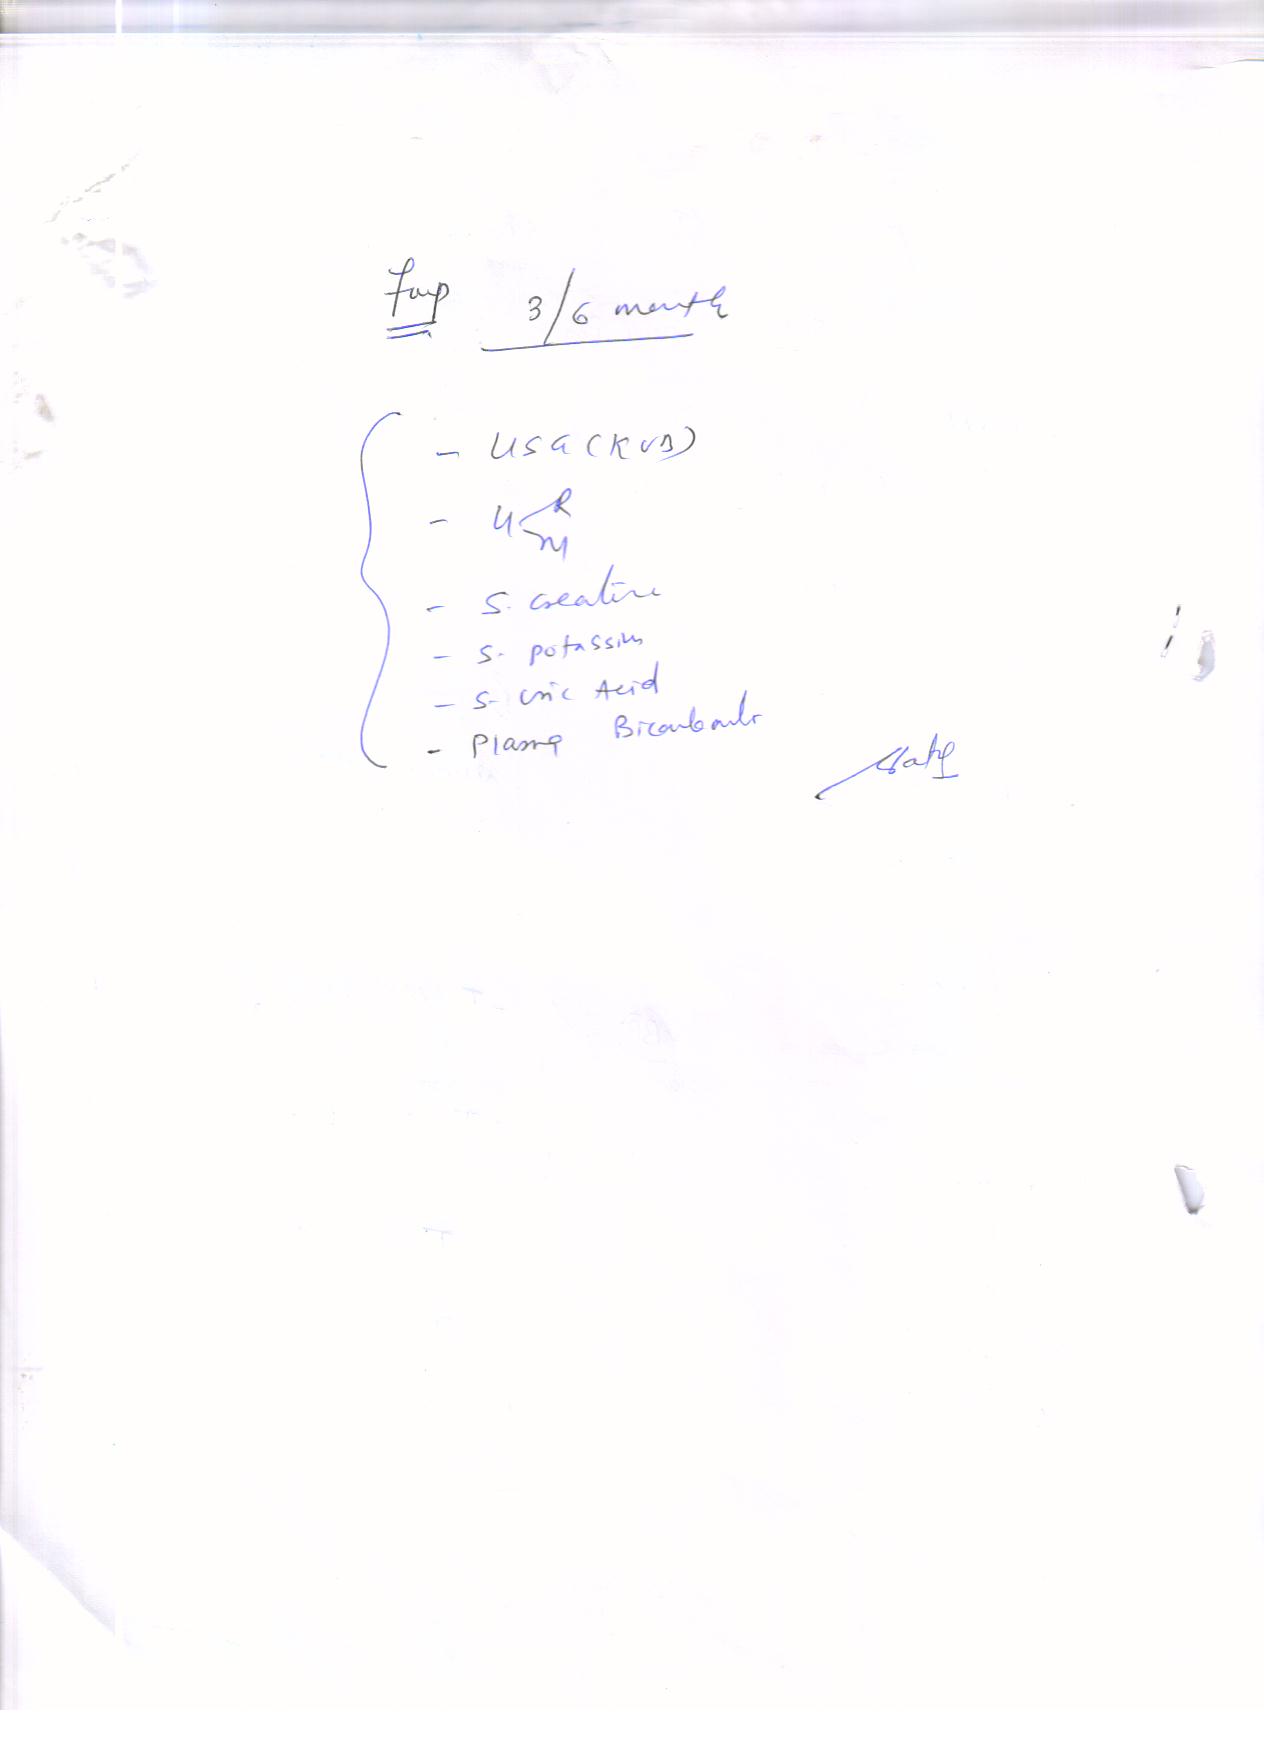 Fup 3/6 month
- USG (KUB)
- U < R
M
- S. creatine
- S. potassium
- S. Uric Acid
- Plasma Bicarbonate